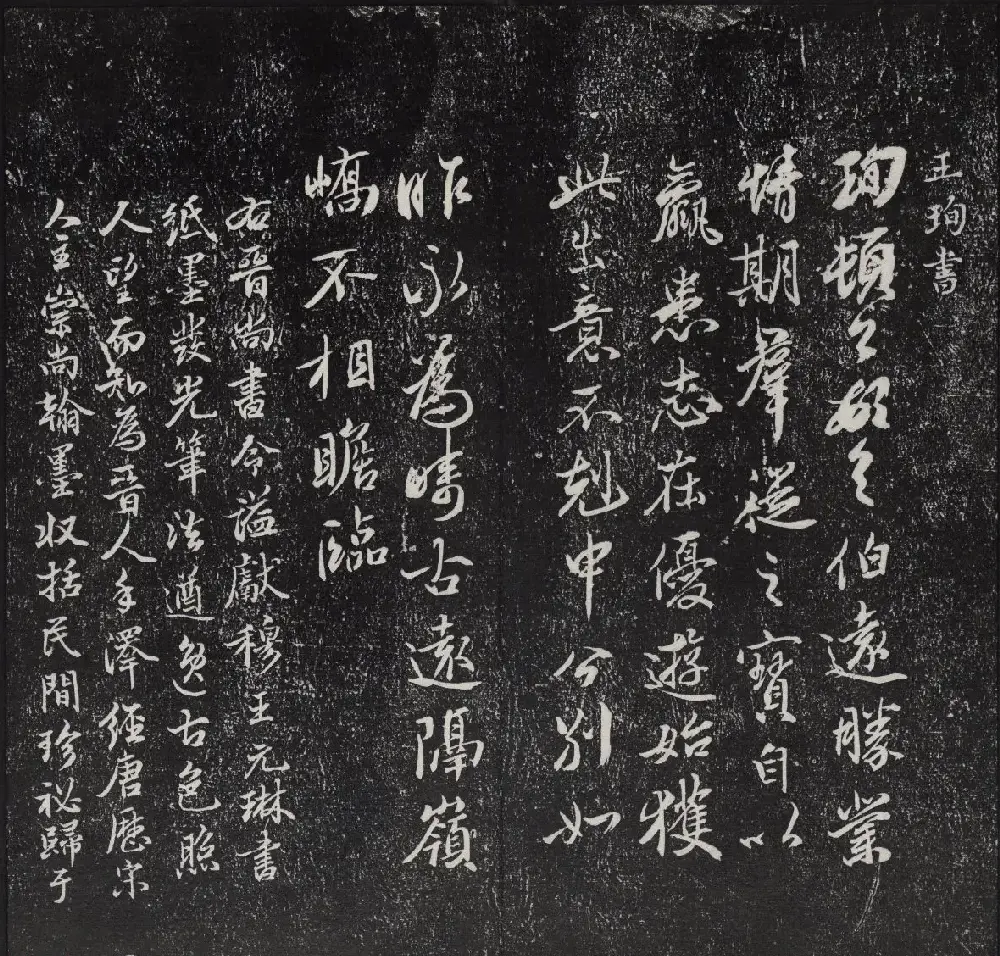 王珣書
珣頓首頓首伯遠勝業
情期羣從之寶自以
羸患志在優遊始獲
此出意不剋申分別如
昨永爲疇古遠隔嶺
嶠不相瞻臨
右晉尚書令謚獻穆王元琳書
紙墨發光筆法遒逸古色照
人望而知為晉人手澤經唐歷宋
人主崇尚翰墨收括民間珍祕歸于